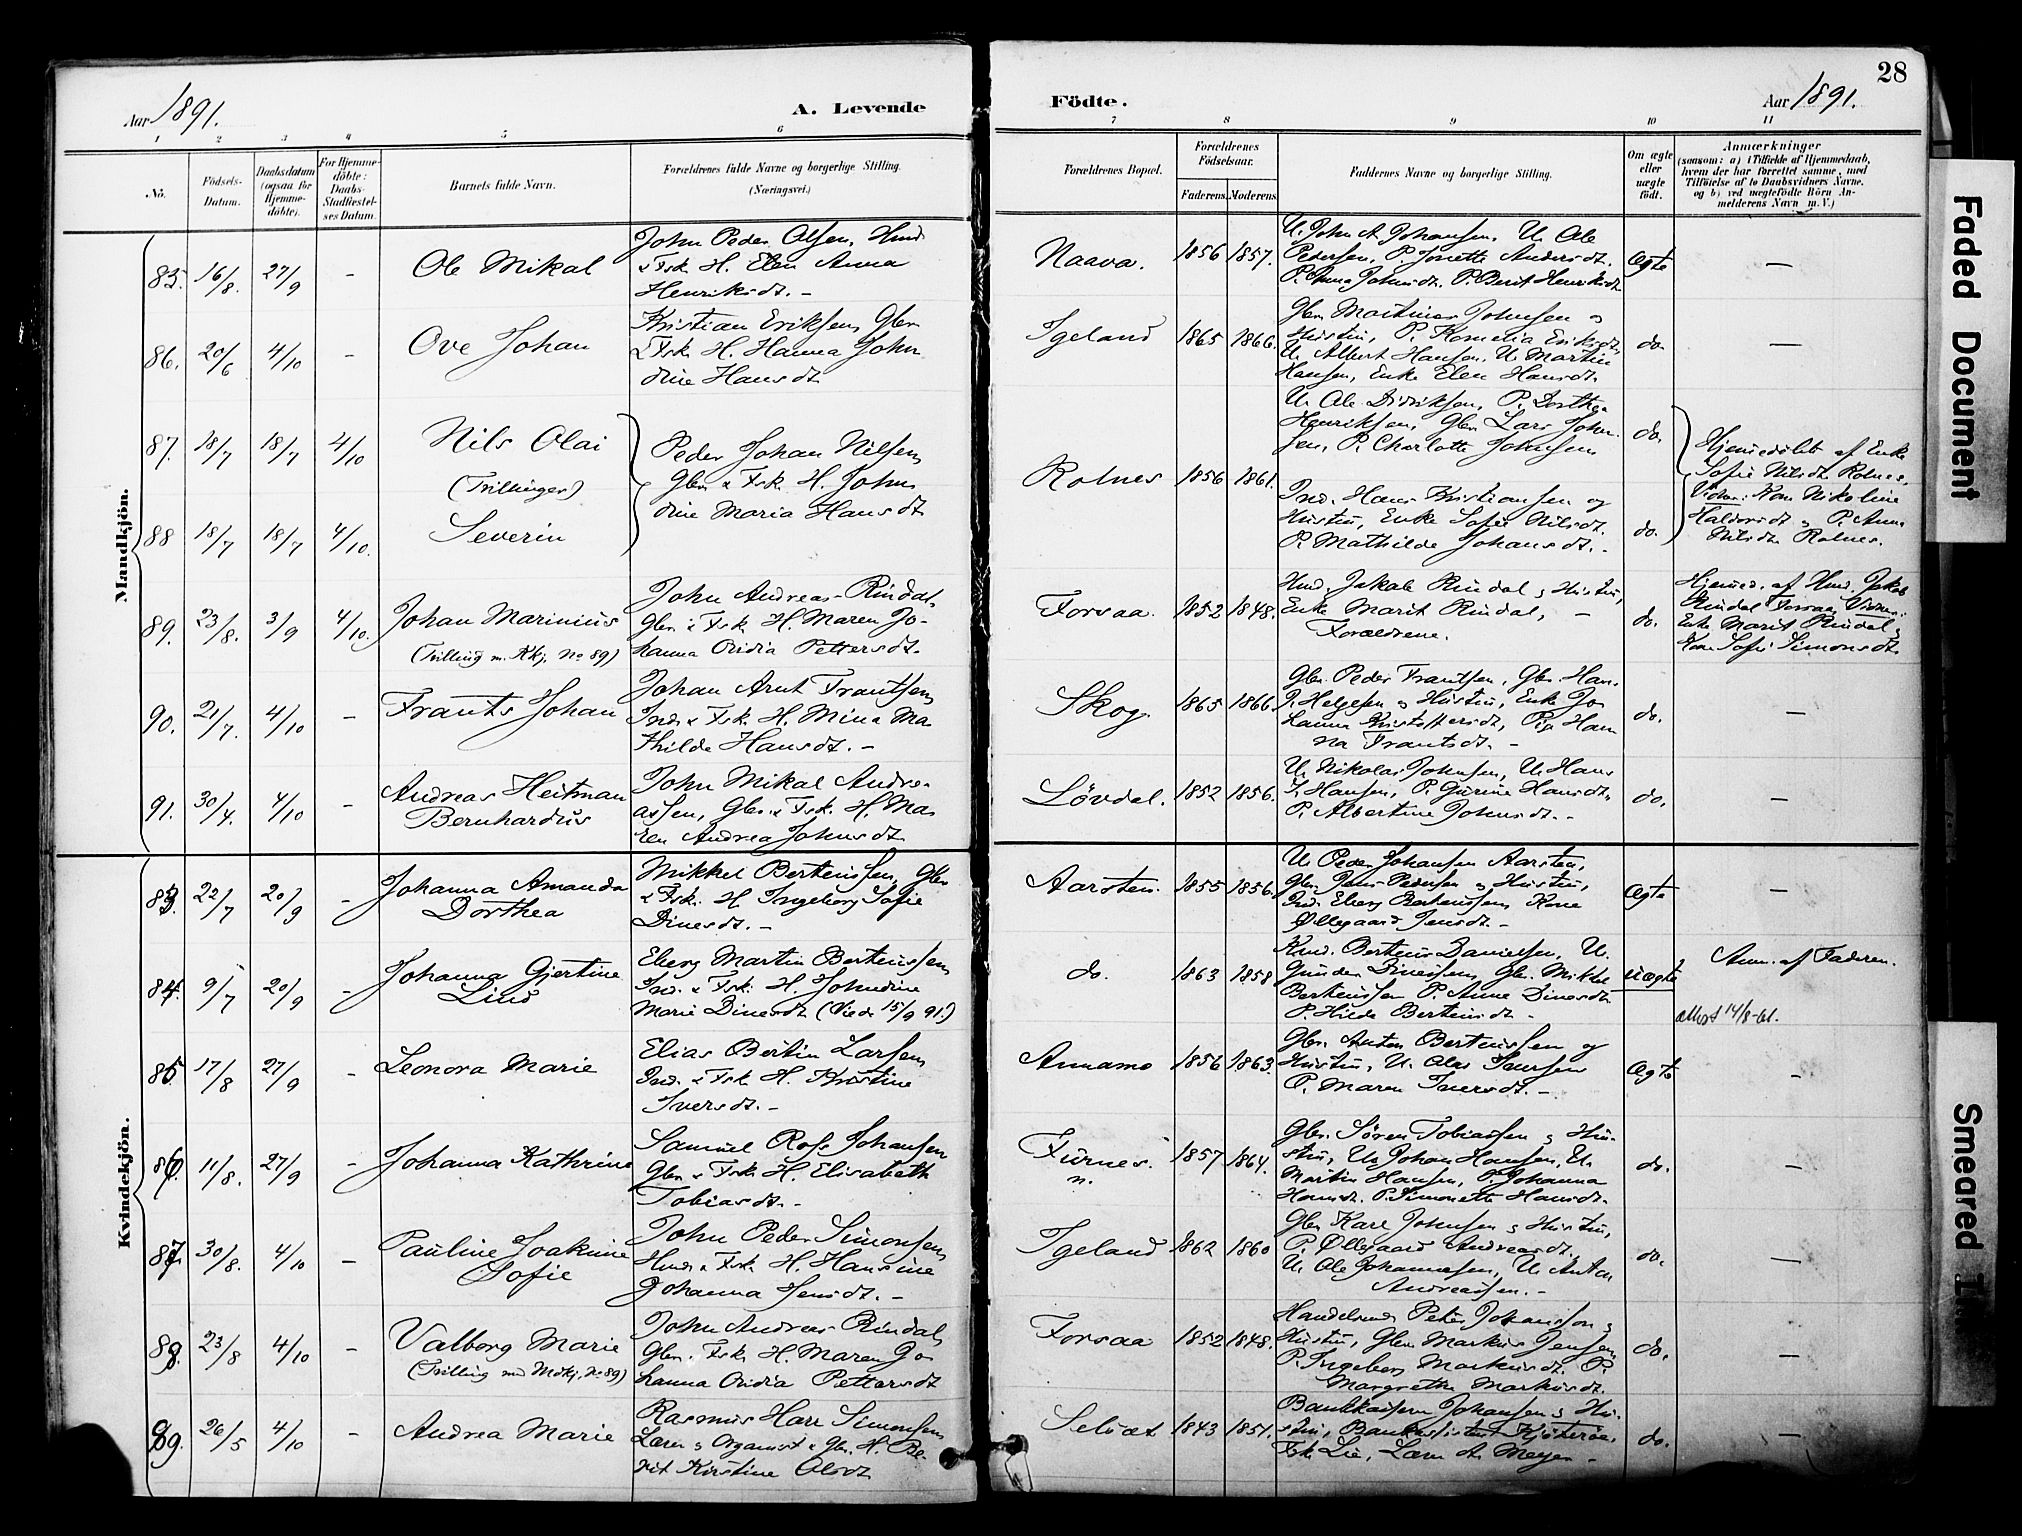 28
Aar 1891.
A. Levende
Födte.
Aar 1891.
1 2 3 4 5 6 7 8 9 10 11
No.
Födsels-Datum.
Daabsdatum (ogsaa for Hjemme-döbte).
For Hjemme-döbte: Daabs-Stadfæstel-ses Datum.
Barnets fulde Navn.
Forældrenes fulde Navne og borgerlige Stilling. (Næringsvei.)
Forældrenes Bopæl.
Forældrenes Födselsaar.
Faderens. Moderens.
Faddernes Navne og borgerlige Stilling.
Om ægte eller uægte födt.
Anmærkninger
(saasom: a) i Tilfælde af Hjemmedaab, hvem der har forrettet samme, med Tilföielse af to Daabsvidners Navne, og b) ved uægtefödte Börn Anmelderens Navn m. V.)
Mandkjön.
85. 16/8. 27/9 - Ole Mikal
John Peder Olsen, Hmd
& Fsk. H. Elen Anna
Henriksdt. -
Naava. 1856 1857.
U. John A. Johansen, U. Ole
Pedersen, P. Jonette Andersdt.
P. Anna Johnsdt. P. Berit Henriksdt
Ægte -
86. 20/6 4/10 - Ove Johan
Kristian Eriksen, Gbr
& Fsk. H. Hanna John
dine Hansdt.
Igeland 1865 1866.
Gbr. Martinus Johnsen og
Hustru, P. Kornelia Eriksdt,
U. Albert Hansen, U. Martin
Hansen, Enke Elen Hansdt.
do. -
87. 18/7 18/7 4/10 Nils Olai
(Tvillinger)
88 18/7 18/7 4/10. Severin
Peder Johan Nilsen,
Gbr. & Fsk. H. John
dine Maria Hansdt
Rotnes 1856 1861.
U. Ole Didriksen, P. Dorthea
Henriksen, Gbr. Lars John
sen, P. Charlotte Johnsen
do.
Ind. Hans Kristiansen og
Hustru, Enke Sofie Nilsdt.
P. Mathilde Johansdt. -
do.
Hjemmedøbt af Enke
Sofie Nilsdt. Rotnes,
Vidner: Kone Nikoline
Haldorsdt. & P. Anne
Nilsdt. Rotnes.
89. 23/8. 3/9 4/10. Johan Marinius
(Tvilling m. Kkj. No 89)
John Andreas Rindal,
Gbr. & Fsk. H. Maren Jo-
hanna Ovidia Pettersdt.
Forsaa. 1852 1848.
Hmd. Jakob Rindal & Hustru,
Enke Marit Rindal, -
Forældrene.
do.
Hjemmed. af Hmd. Jakob
Rindal Forsaa, Vidner:
Enke Marit Rindal &
Kone Sofie Simonsdt.
90. 21/7. 4/10 - Frants Johan
Johan Arnt Frantsen,
Ind. & Fsk. H. Mina Ma
thilde Hansdt. -
Skog. 1865 1866.
Gbr. Peder Frantsen, Gbr. Han.
J. Helgesen & Hustru, Enke Jo
hanna Kristoffersdt, Pig. Han
na Frantsdt. -
do. -
91. 30/4. 4/10 - Andreas Heitman
Bernhardus
John Mikal Andre-
assen, Gbr. & Fsk. H. Ma
ren Andrea Johnsdt.
Lövdal. 1852 1856.
U. Nikolai Johnsen, U. Hans
Hansen, P. Gurine Hansdt.
P. Albertine Johnsdt. -
do. -
Kvindekjön.
83. 22/7 20/9 - Johanna Amanda
Dorthea
Mikkel Bertinssen, Gbr
& Fsk. H Ingeborg Sofie
Dinesdt. -
Aarsten. 1855 1856.
U. Peder Johansen Aarsten,
Gbr. Jens Pedersen & Hustru,
Ind. Eberg Bertinssen, Kone
Øllegaard Jensdt. -
Ægte -
84. 9/7 20/9 - Johanna Gjertine
Lind
Eberg Martin Bertinssen,
Ind. & Fsk. H. Johndine
Marie Dinesdt (Viede 15/9 91.)
do. 1863 1858
Hmd. Berteus Danielsen, U.
Gunder Dinessen, Gbr. Mikkel
Bertinssen P. Anne Dinesdt.
P. Hilde Bertinsdt. -
uægte
Anm. af Faderen.
attest 14/8-61.
85. 17/8 27/9 - Leonora Marie
Elias Bertin Larsen,
Ind. & Fsk. H. Kristine
Iversdt. -
Annamo 1856 1863.
Gbr. Anton Bertinssen og
Hustru, U. Olai Iversen
P. Maren Iversdt. -
Ægte -
86. 11/8. 27/9 - Johanna Kathrine
Samuel Rose Johansen
Gbr. & Fsk. H. Elisabeth
Tobiasdt. -
Furnes. n. 1857 1864.
Gbr. Søren Tobiassen & Hu-
stru, U. Johan Hansen, U.
Martin Hansen, P. Johanna
Hansdt. P. Simonette Hansdt.
do. -
87. 30/8. 4/10 - Pauline Joakime
Sofie
John Peder Simonsen,
Hmd & Fsk. H. Hansine
Johanna Jensdt. -
Igeland 1862 1860
Gbr Karl Johnsen & Hustru,
P. Øllegaard Andreasdt.
U. Ole Johannesen, U. Anton
Andreassen. -
do. -
88. 23/8 4/10 - Valborg Marie
(Tvilling med Mdkj. No 89)
John Andreas Rindal,
Gbr. Fsk. H. Maren Jo
hanna Ovidia Pettersdt
Forsaa 1852 1848.
Handelsmd Peter Johansson &
Hustru, Gbr. Markus Jensen
P. Ingeborg Markusdt. P.
Margrethe Markusdt.
do. -
89. 26/5 4/10 - Andrea Marie
Rasmus Harr Simonsen
Lærer & Organist & Gbr. H. Be
rit Kirstine Olsdt
1843 1851.
Johansen & Hu.
stru,
Fsk. Lie, Lærer A. Meyer -
do. -
Faded Document
Smeared